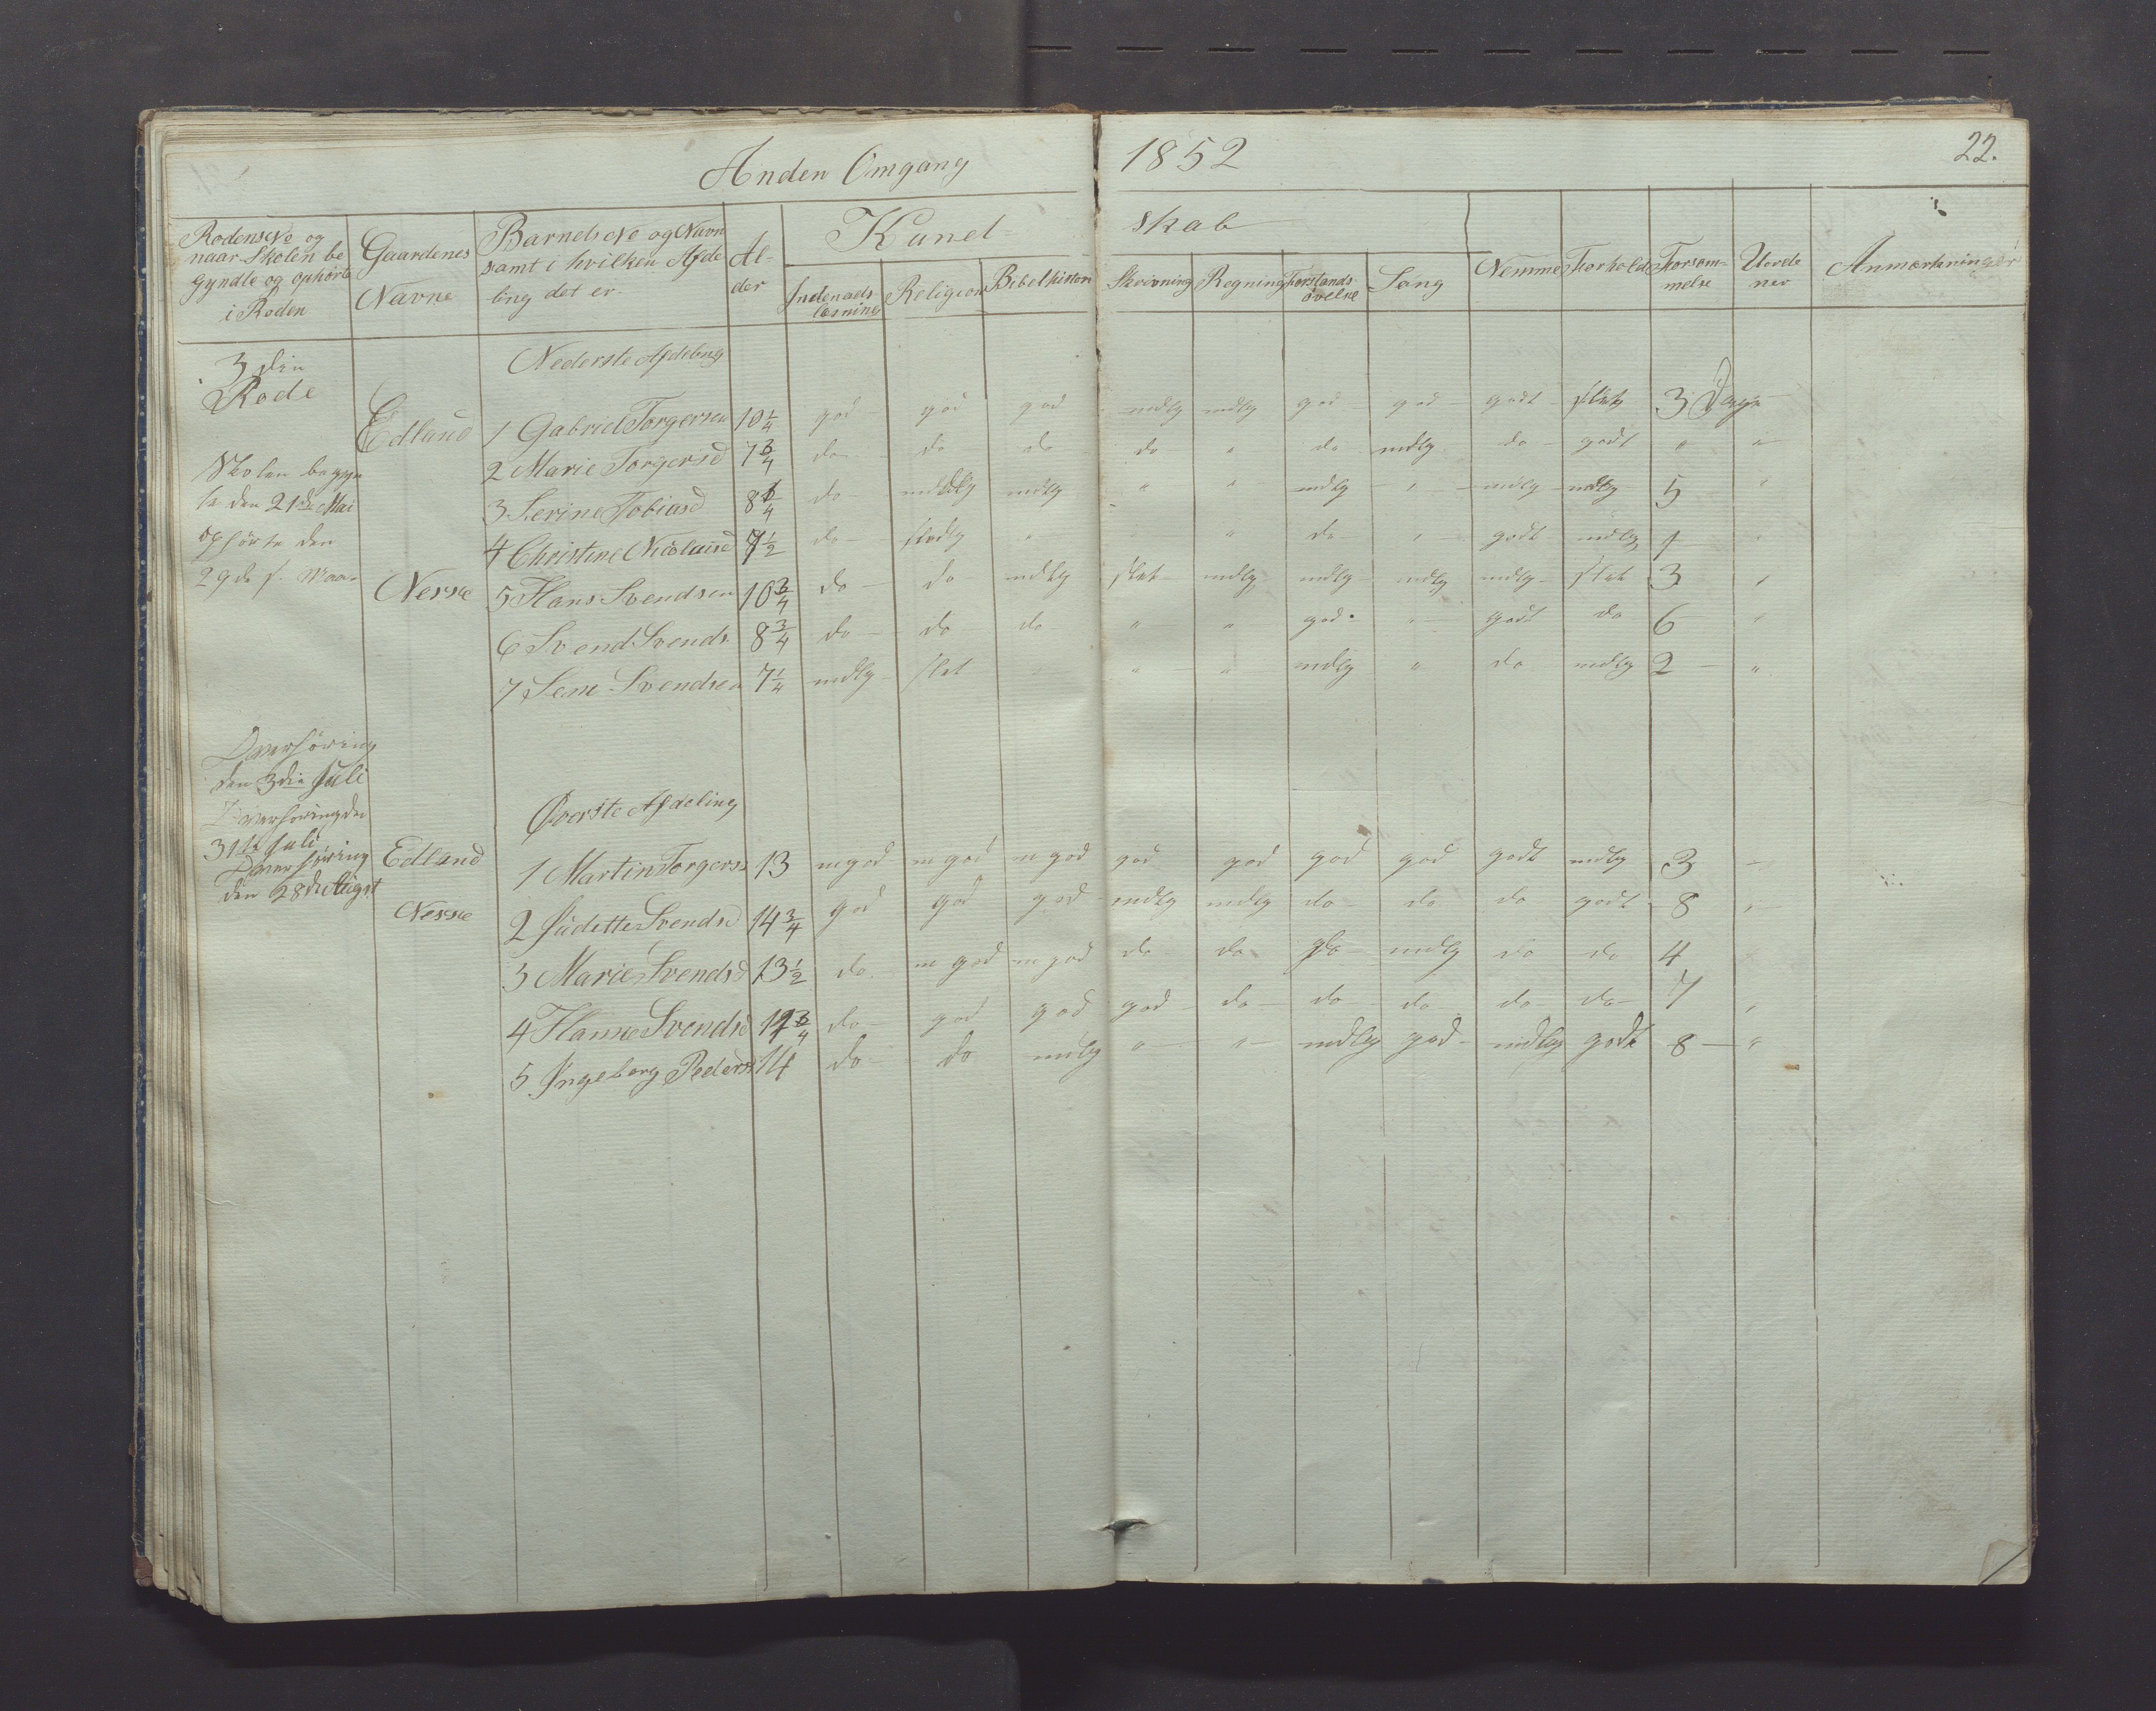 Anden Omgang 1852 22.
Rodens No og naar Skolen be gyndte og ophörte i Roden
Gaardenes Navne
Barnets No og Navn samt i hvilken Afde ling det er
Al- der
Kund- skab
Indenads læsning Religion Bibelhistori Skrivning Regning Forstands övelse Sang Nemme Forhold Forsöm- melse Uorde ner Anmærkninger
3 die Nederste Afdeling
Rode
Edland 1 Gabriel Torgersen 10 1/4 god god god mdlg mdlg god god godt slet 3 Dage
2 Marie Torgersd 7 3/4 do do do do " do mdlg do godt " "
Skolen begyn
3 Serine Tobiasd 8 1/4 do mdlg mdlg " " mdlg " mdlg mdlg 5 "
te den 21de Mai
4 Christine Nicolaisd 7 1/2 do " " do " godt mdlg 1
ophörte den
29de s. Maa-
Nesse 5 Hans Svendsen 10 3/4 do do mdlg slet mdlg mdlg mdlg mdlg slet 3 "
6 Svend Svends 8 3/4 do do do " " god " godt do 6 "
7 Svendsen 7 1/4 mdlg slet " " mdlg " do mdlg 2 "
Overhöring
den 3die Juli
Overhöring den Överste Afdeling
31te Juli
Edland 1 Martin Torgers 13 mgod mgod mgod god god god god godt mdlg 3
Overhöring
den 28de Augst
Nesse 2 Judette Svendsd 14 3/4 god god god mdlg mdlg do do do godt 8 "
3 Marie Svendsd 13 1/2 do mgod mgod do do do mdlg do do 4
4 Hanne Svendsd 3/4 do god god god do do do do do 7 "
5 Ingeborg Peders 14 do do mdlg " " mdlg god mdlg godt 8 "